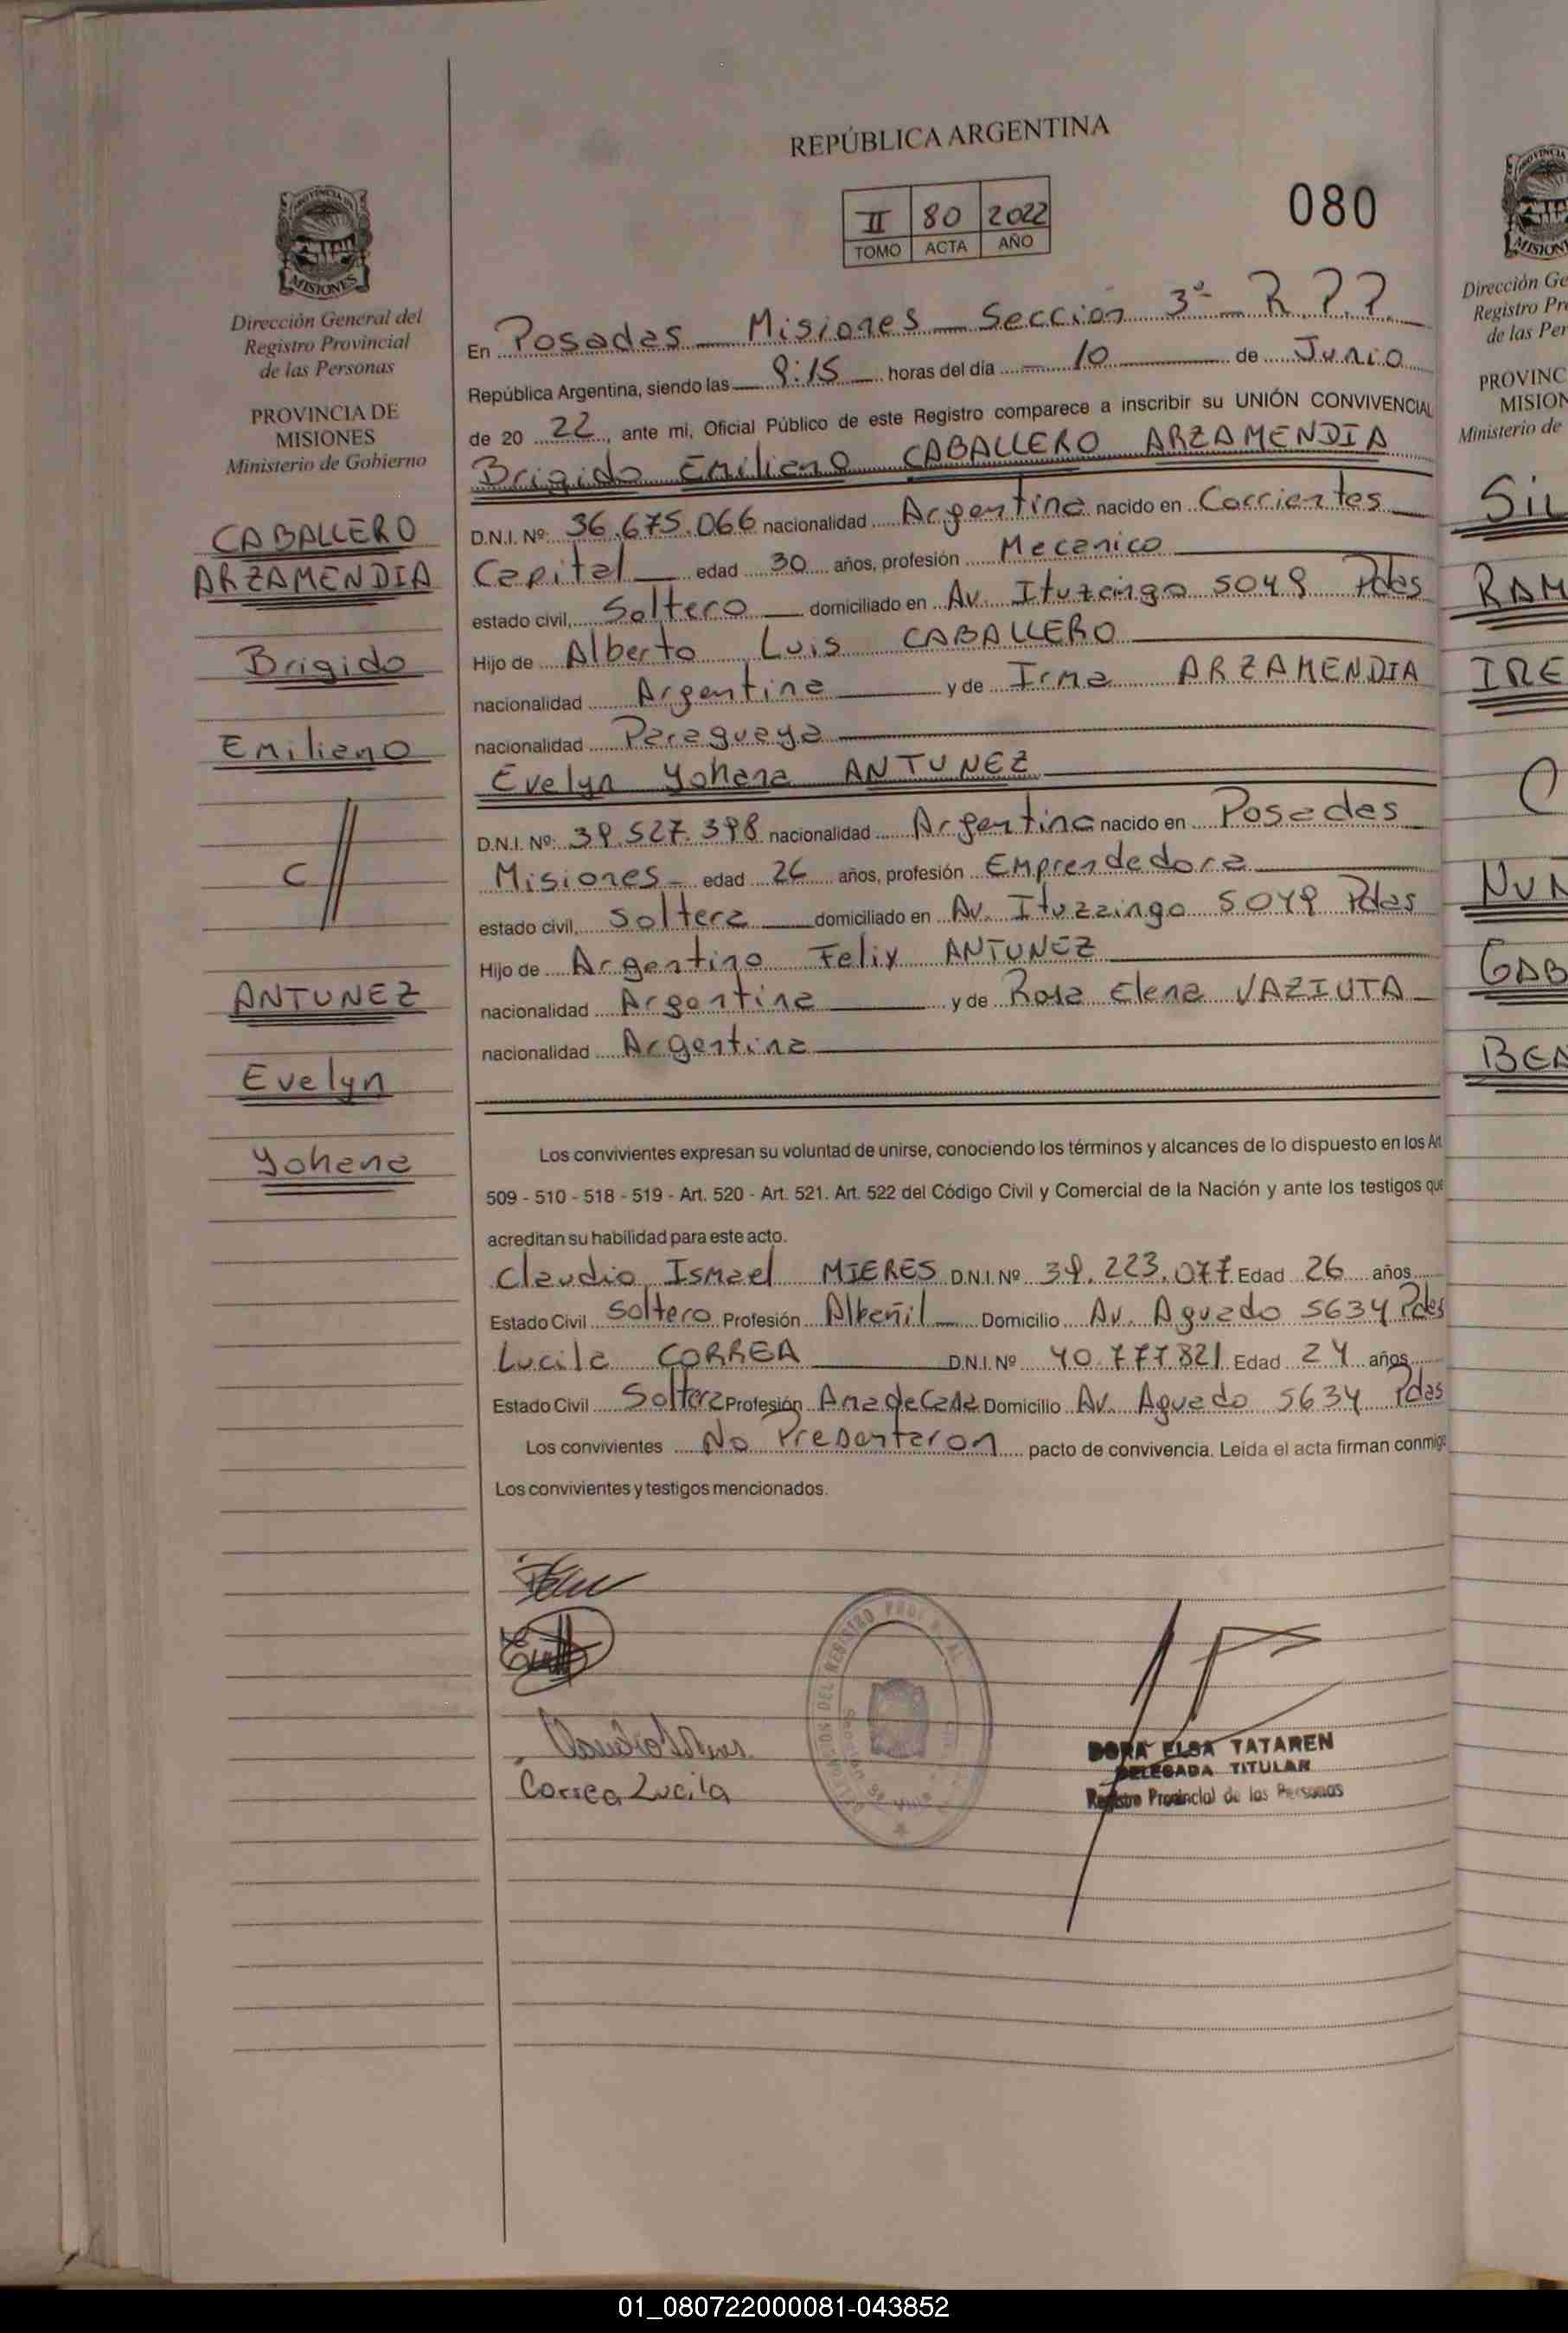 REPÚBLICA ARGENTINA
II 80 2022
TOMO ACTA AÑO
080
PROVINCIA
MISIONES
Dirección General del
Registro Provincial
de las Personas
PROVINCIA DE
MISIONES
Ministerio de Gobierno
CABALLERO
ARZAMENDIA
Brigido
Emiliano
C//
ANTUNEZ
Evelyn
Yohana
En Posadas Misiones Sección 3º R.P.P.
República Argentina, siendo las 9:15 horas del día 10 de Junio
de 20 22, ante mi, Oficial Público de este Registro comparece a inscribir su UNIÓN CONVIVENCIAL
Brigido Emiliano CABALLERO ARZAMENDIA
D.N.I. Nº: 36.675.066 nacionalidad Argentina nacido en Corrientes
Capital edad 30 años, profesión Mecanico
estado civil, Soltero domiciliado en Av. Ituzaingo 5049 Pdas
Hijo de Alberto Luis CABALLERO
nacionalidad Argentina y de Irma ARZAMENDIA
nacionalidad Paraguaya
Evelyn Yohana ANTUNEZ
D.N.I. Nº: 39.527.398 nacionalidad Argentina nacido en Posadas
Misiones edad 26 años, profesión Emprendedora
estado civil, Soltera domiciliado en Av. Ituzaingo 5049 Pdas
Hijo de Argentino Felix ANTUNEZ
nacionalidad Argentina y de Rosa Elena VAZIUTA
nacionalidad Argentina
Los convivientes expresan su voluntad de unirse, conociendo los términos y alcances de lo dispuesto en los Art.
509 - 510 - 518 - 519 - Art. 520 - Art. 521. Art. 522 del Código Civil y Comercial de la Nación y ante los testigos que
acreditan su habilidad para este acto.
Claudio Ismael MIERES D.N.I. Nº 39.223.077 Edad 26 años
Estado Civil Soltero Profesión Albañil Domicilio Av. Aguado 5634 Pdas
Lucila CORREA D.N.I. Nº 40.777.821 Edad 24 años
Estado Civil Soltera Profesión Ama de Casa Domicilio Av. Aguado 5634 Pdas
Los convivientes No Presentaron pacto de convivencia. Leída el acta firman conmigo
Los convivientes y testigos mencionados.
Correa Lucila
DORA ELSA TATAREN
DELEGADA TITULAR
Registro Provincial de las Personas
Dirección Ge
Registro Pr
de las Per
PROVINC
MISION
Ministerio de
SIL
RAM
IRE
C
NUN
GAB
BEN
01_080722000081-043852